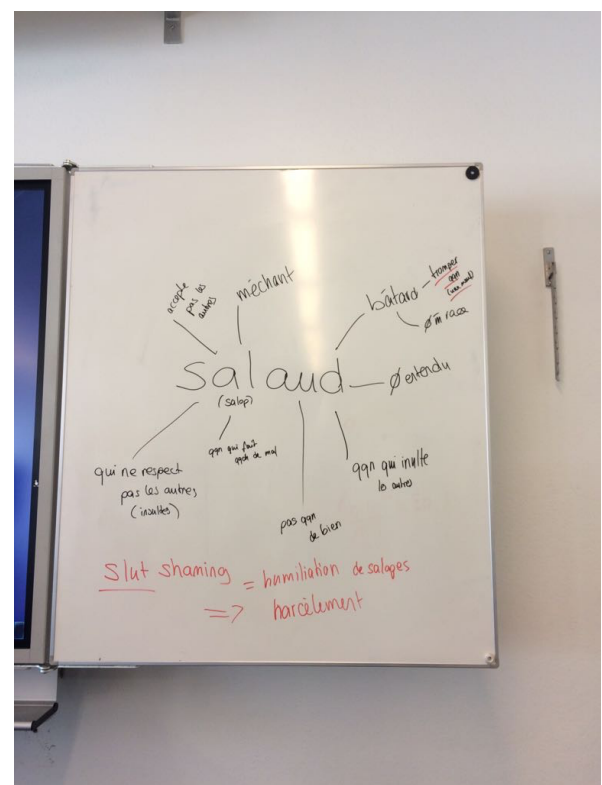 accepte
pas les
autres
méchant
bâtard
tromper
qqn
ø m̂ race
salaud
(salop)
ø entendu
qui ne respect
pas les autres
(insultes)
qqn qui fait
qqch de mal
pas qqn
de bien
qqn qui inulte
les autres
Slut shaming = humiliation de salopes
=> harcèlement